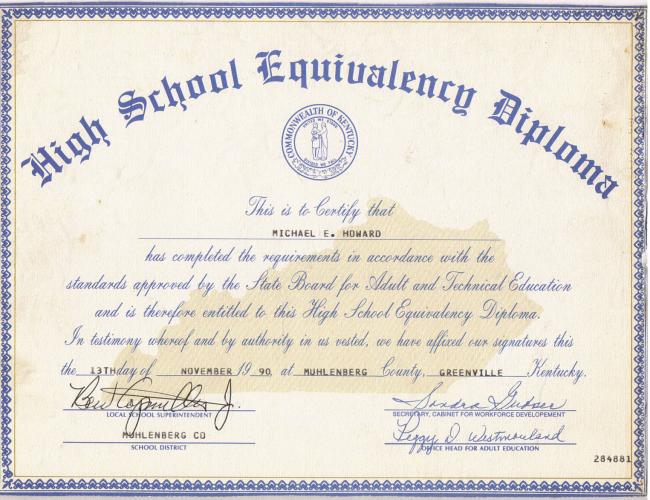 High School Equivalency Diploma
COMMONWEALTH OF KENTUCKY
UNITED WE STAND
DIVIDED WE FALL
This is to Certify that
MICHAEL E. HOWARD
has completed the requirements in accordance with the
standards approved by the State Board for Adult and Technical Education
and is therefore entitled to this High School Equivalency Diploma.
In testimony whereof and by authority in us vested, we have affixed our signatures this
the 13TH day of NOVEMBER 19 90 at MUHLENBERG County, GREENVILLE Kentucky.
Sandra Gubser
LOCAL SCHOOL SUPERINTENDENT SECRETARY, CABINET FOR WORKFORCE DEVELOPEMENT
MUHLENBERG CO Peggy D Westmoreland
SCHOOL DISTRICT OFFICE HEAD FOR ADULT EDUCATION
284881